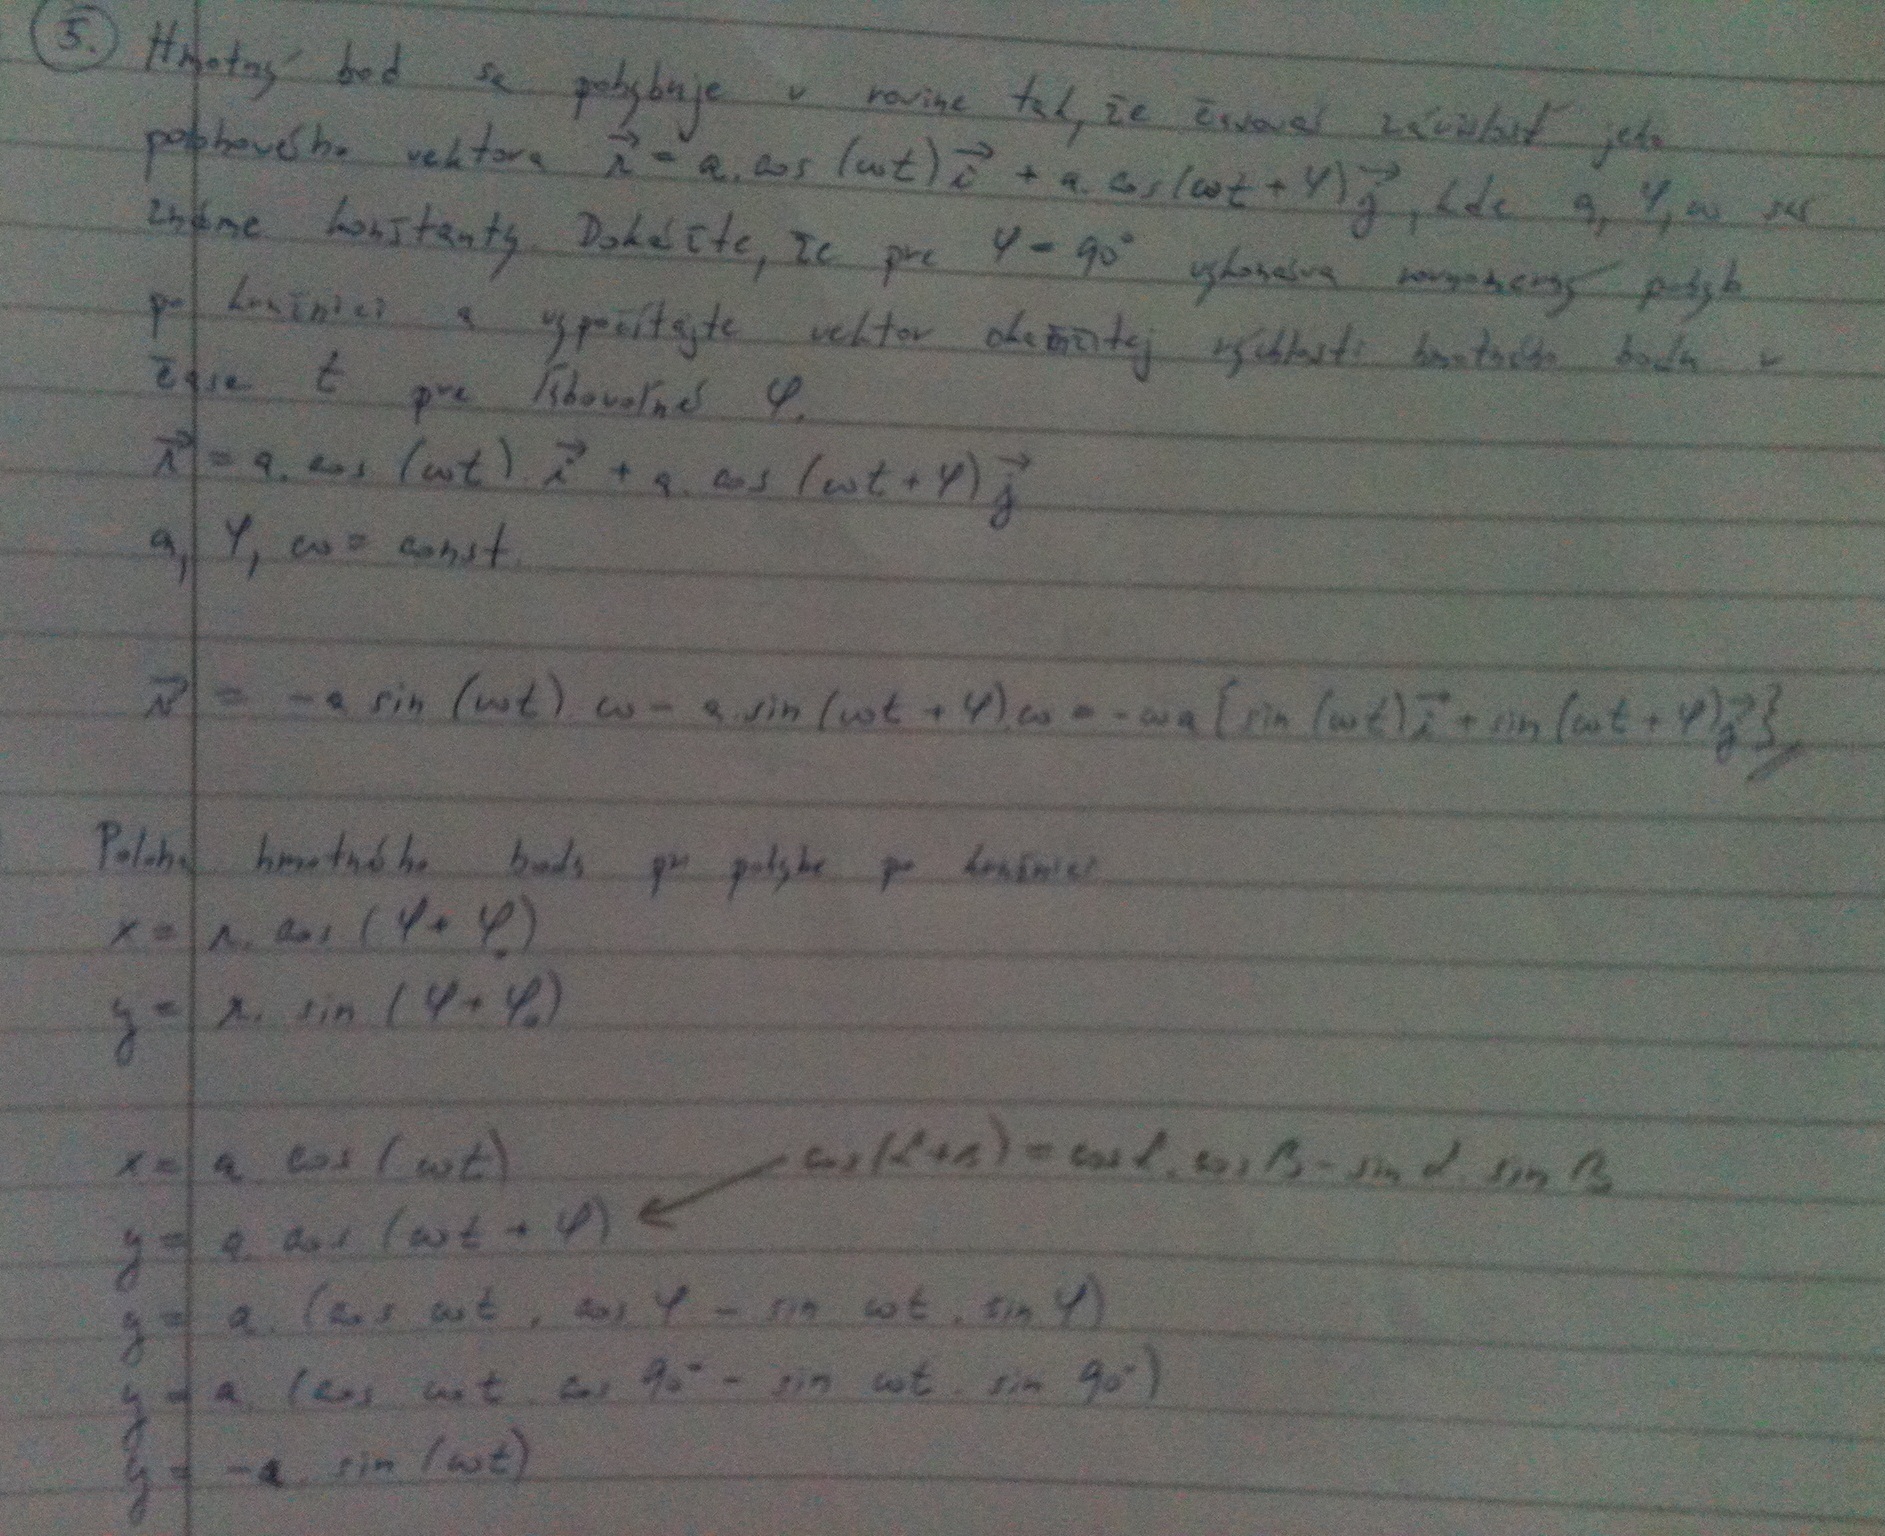 5. Hmotný bod sa pohybuje v rovine tak, že časová závislosť jeho
polohového vektora r⃗ = a. cos (ωt) i⃗ + a. cos(ωt + φ) j⃗, kde a, φ, ω sú
známe konštanty. Dokážte, že pre φ = 90° vykonáva rovnomerný pohyb
po kružnici a vypočítajte vektor okamžitej rýchlosti hmotného bodu v
čase t pre ľubovoľné φ.
r⃗ = a. cos (ωt). i⃗ + a. cos (ωt + φ) j⃗
a, φ, ω = const.
v⃗ = -a sin (ωt) ω - a. sin (ωt + φ). ω = -ωa [sin (ωt) i⃗ + sin (ωt + φ) j⃗]
Poloha hmotného bodu pri pohybe po kružnici
x = r. cos (φ + φ₀)
y = r. sin (φ + φ₀)
x = a. cos (ωt) cos(α+β) = cos α. cos β - sin α. sin β
y = a. cos (ωt + φ)
y = a. (cos ωt . cos φ - sin ωt . sin φ)
y = a. (cos ωt. cos 90° - sin ωt . sin 90°)
y = -a. sin (ωt)